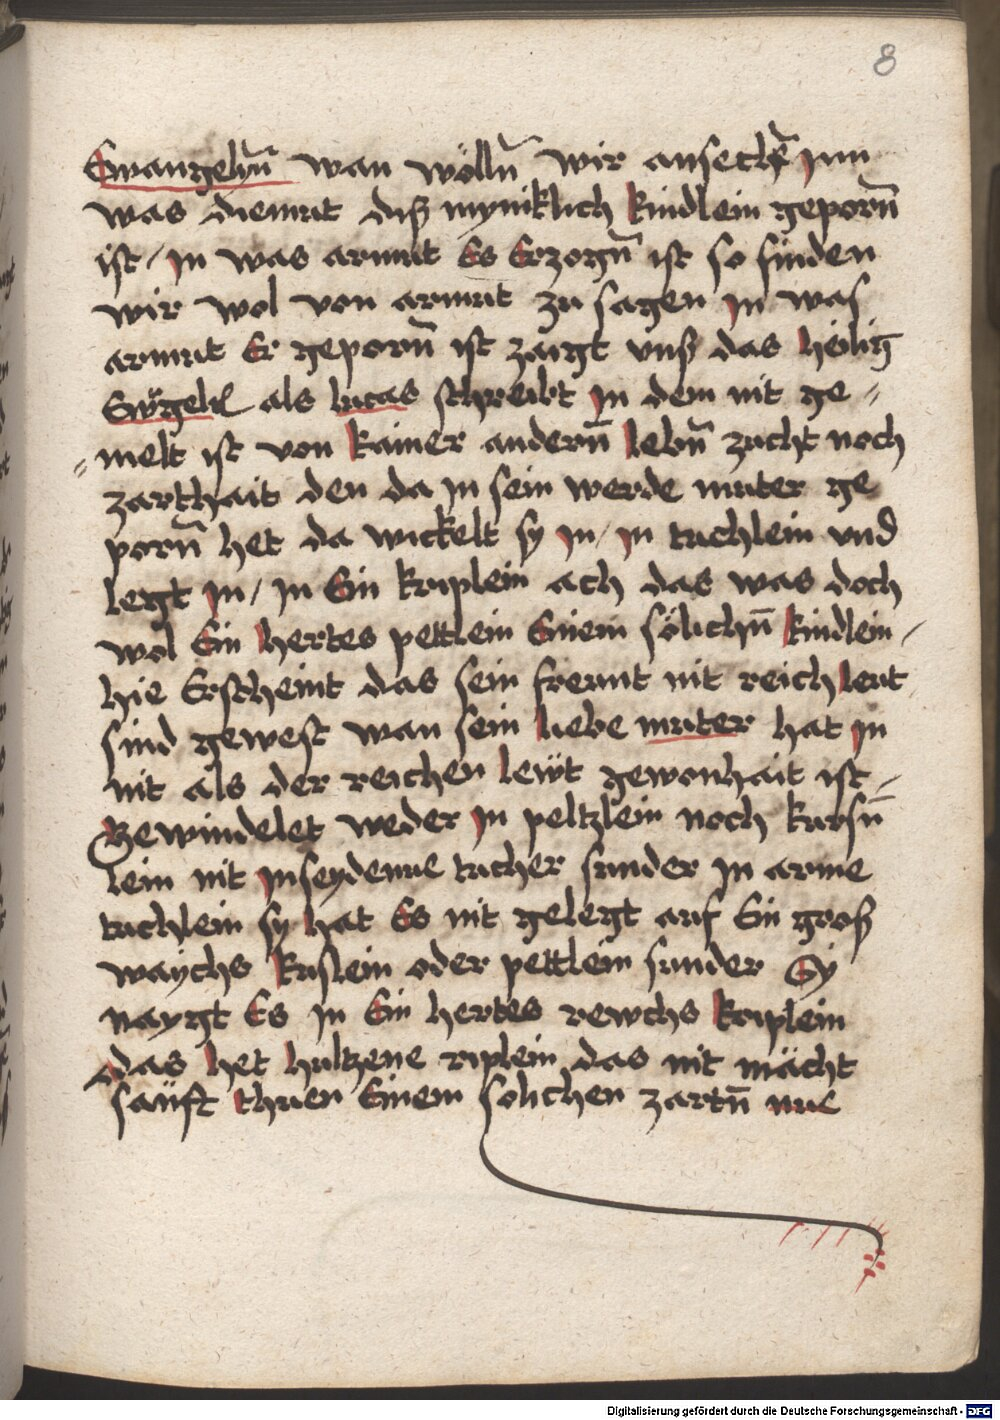 8
Ewangelyn̄ wan wölln̄ wir ansechn̄ Inn
was diemut diß myniklich kindlein geporn̄
ist / In was armut Es Erzogn̄ ist so finden
wir wol von armut zu sagen In was
armut Er geporn̄ ist zaigt vnß das heilig
als lucas schreibt In dem nit ge⸗
⸗melt ist von kainer andern̄ lebn̄ zucht noch
zarthait den da In sein werde muter ge
porn̄ het da wickelt sy In / In tuchlein vnd
legt In / In Ein kriplein ach das was doch
wol Ein hertes pettlein Einem sölichn̄ kindlein /
hie Erscheint das sein freunt nit reich leut
sind gewest wan sein liebe muter hat In
nit als der reichen lewt gewonhait ist /
Gewindelet weder In peltzlein noch kursn̄
lein nit In seydenne tucher sunder In arme
tuchlein sy hat Es nit gelegt auf Ein groß
waychs kuslein oder pettlein sunder Sy
naygt Es In Ein hertes rewchs kriplein
das het hultzene riplein das nit mächt
säuft thuen Einem solichen zartn̄ nue
Digitalisierung gefördert durch die Deutsche Forschungsgemeinschaft - DFG